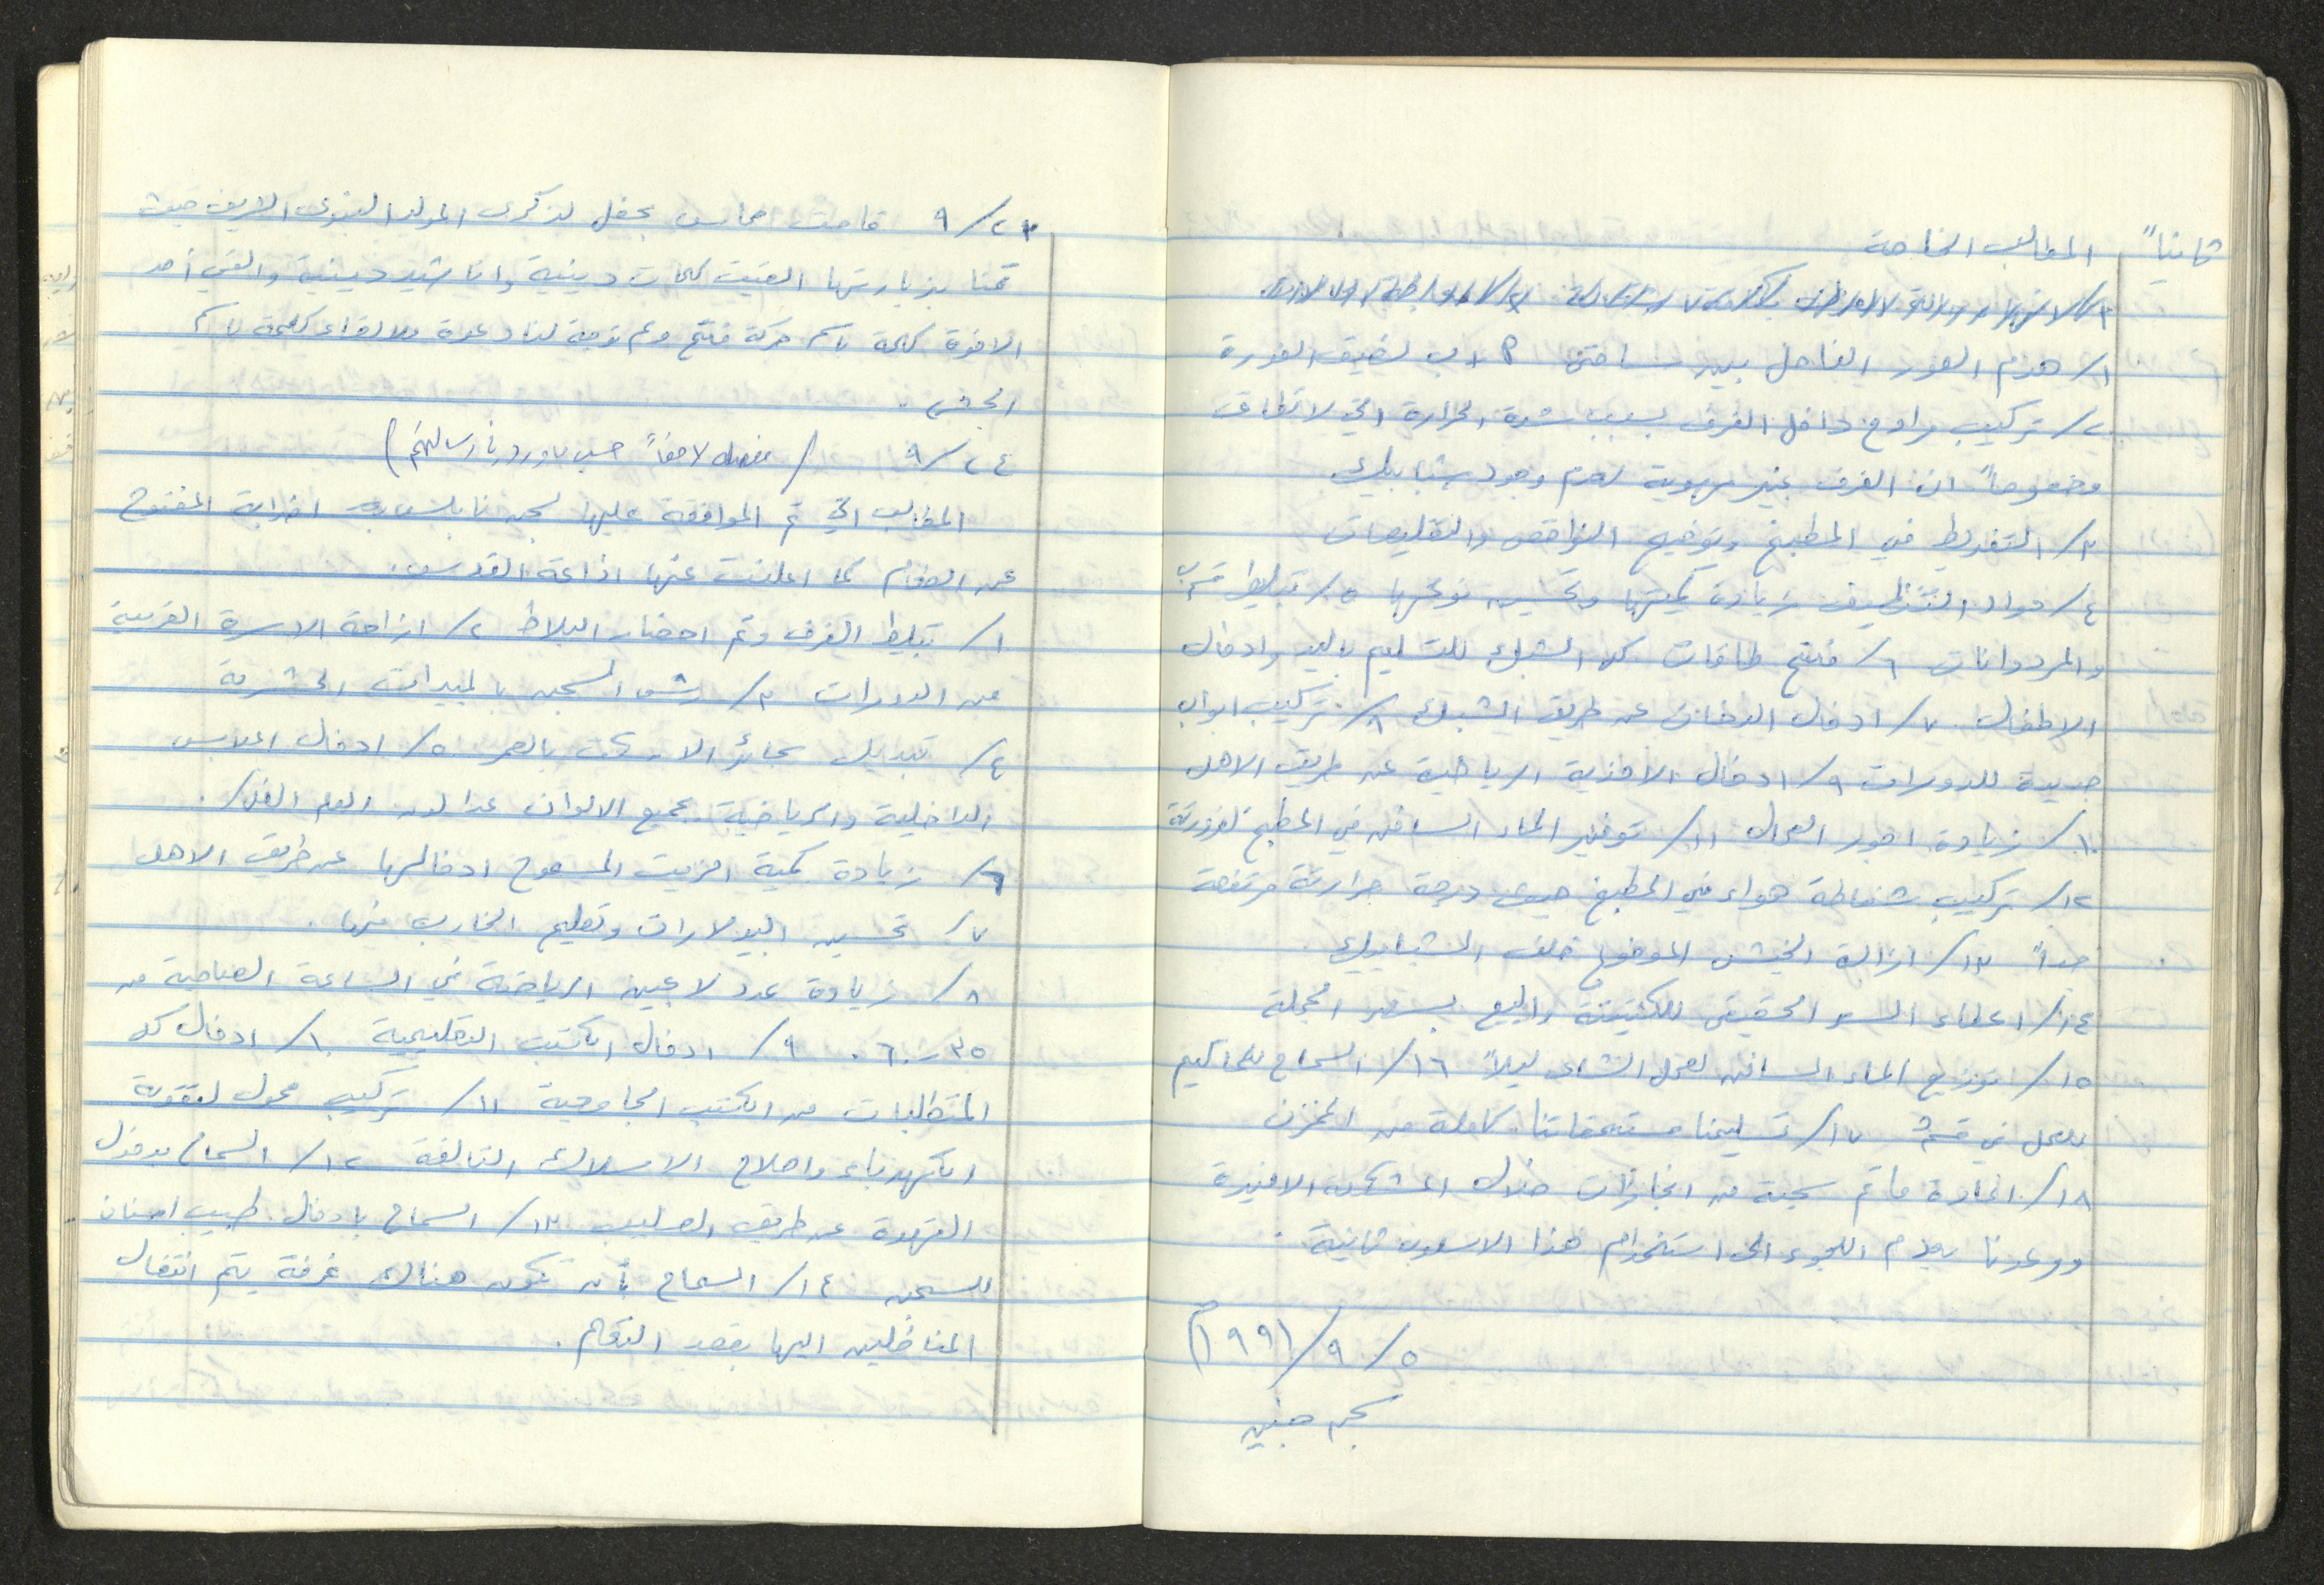 ثانياً المطالب الخاصة
١/ هدم السور الفاصل بين ساحتي أ و ب لضيق الفورة
٢/ تركيب مراوح داخل الغرف بسبب شدة الحرارة التي لا تطاق
وخصوصاً ان الغرف غير مهوية لعدم وجود شبابيك
٣/ التفريط في المطبخ وتوضيح النواقص والتقليصات
٤/ مواد التنظيف زيادة كميتها وتحسين نوعيتها ٥/ تبليط قسم ب
والمردوانات ٦/ فتح طاقات كل الشبك للتسليم باليد وادخال
الاطفال. ٧/ ادخال الدخان عن طريق الشبك ٨/ تركيب ابواب
جديدة للدورات ٩/ ادخال الاحذية الرياضية عن طريق الاهل
١٠/ زيادة اجور العمال ١١/ توفير الماء الساخن في المطبخ لضرورته
١٢/ تركيب شفاطة هواء في المطبخ حيث درجة حرارته مرتفعة
جداً ١٣/ ازالة الخيش الموضوع خلف الشبابيك
١٤/ اعطاء السعر الحقيقي للكنتينة والبيع بسعر الجملة
١٥/ توزيع الماء الساخن لعمل الشاي ليلاً ١٦/ السماح للمحاكيم
للعمل في قسم ١٧/ تسليمنا مستحقاتنا كاملة من المخزن
١٨/ اعادة ما تم سحبه من انجازات خلال المشكلة الاخيرة
ووعدنا بعدم اللجوء الى استخدام هذا الاسلوب ثانية.
٥/٩/١٩٩١م
سجن جنين
٢٣/٩ قامت حماس بحفل لذكرى المولد النبوي الشريف حيث
قمنا بزيارتها القيت كلمات دينية واناشيد دينية والقى أحد
الاخوة كلمة باسم حركة فتح ولم توجه لنا دعوة للالقاء كلمة باسم
الجبهة.
٢٤/٩ (مفصله لاحقاً حسب ما ورد في رسالتهم)
المطالب التي تم الموافقة عليها لسجن نابلس بعد اضرابه المفتوح
عن الطعام كما اعلنت عنها اذاعة القدس.
١/ تبليط الغرف وتم احضار البلاط ٢/ ازاحة الاسرة القريبة
من الدورات ٣/ رش السجن بالمبيدات الحشرية
٤/ تبديل سجائر الاسكت بالعمر ٥/ ادخال الملابس
الداخلية والرياضية بجميع الالوان عدا لون العلم الفل/.
٦/ زيادة كمية الزيت المسموح ادخالها عن طريق الاهل
٧/ تحسين البولارات وتصليح الخارب منها.
٨/ زيادة عدد لاعبين الرياضة في الساعة الصباحية من
٣٥ – ٦٠. ٩/ ادخال الكتب التعليمية ١٠/ ادخال كل
المتطلبات من الكتب الجامعية ١١/ تركيب محول لتقوية
الكهرباء واصلاح الاسلاك التالفة ١٢/ السماح بدخول
القهوة عن طريق الصليب ١٣/ السماح بادخال طبيب اسنان
للسجن ١٤/ السماح بأن تكون هنالك غرفة يتم انتقال
المناضلين اليها بقصد التعلم.